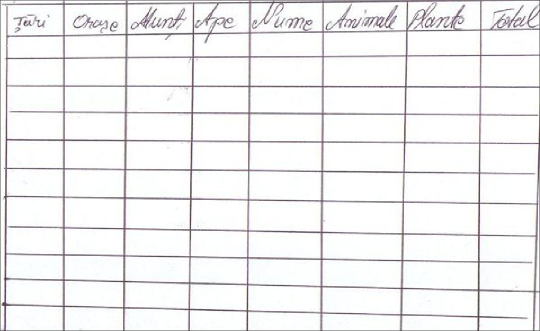 Țări Orașe Munți Ape Nume Animale Plante Total